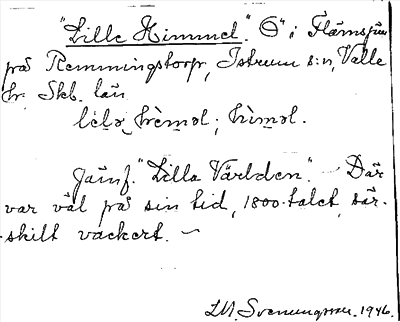 "Lille Himmel". Ö i Flämsjön
på Remmingstorp, Istrum s:n, Valle
hr. Skb. län
lılə hèməl; hìməl.
Jämf. "Lilla Världen." – Där
var väl på sin tid, 1800-talet, sär-
skilt vackert. –
LM. Svenungsson. 1946.